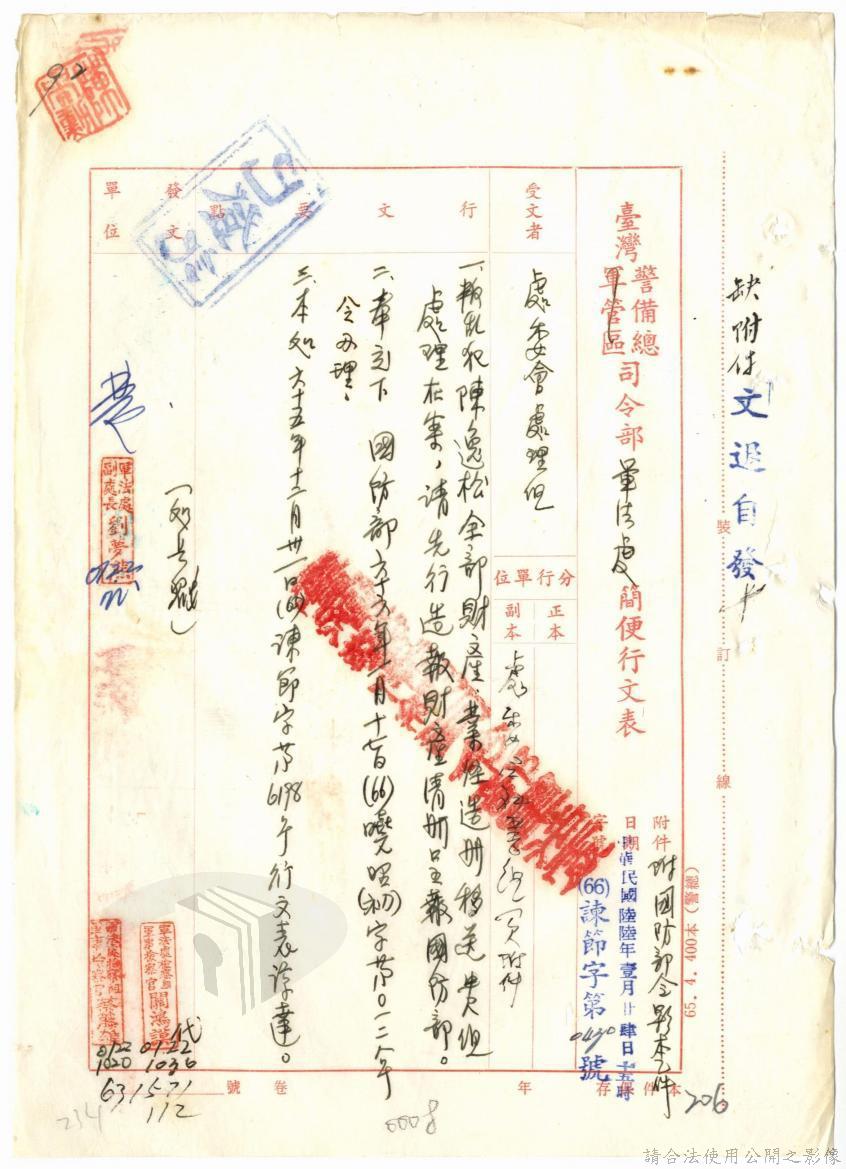 缺附件
文退自發
裝訂線
臺灣警備總司令部軍法處簡便行文表
軍管區
受文者
處委會處理組
分行單位
正本
副本
附件
附國防部令影本乙件
日期
中華民國陸陸年壹月廿肆日十五時
字號
(66)諫節字第0490號
65.4.400本(警總)
行文要點
一、叛亂犯陳逸松全部財產,業經造冊移送貴組
處理在案,請先行造報財產清冊呈報國防部。
二、奉交下 國防部六十六年一月十七日(66)曉昭(初)字第〇一二八號
令辦理。
三、本處六十五年十二月卅一日(65)諫節字第6198號行文表諒達。
發文單位
軍法處
副處長劉夢
0122
軍事檢察官關鴻謨
代
0122
1030
1571
112
0122
1020
631
本件保存
年
卷
號
206
234
0008
92
請合法使用公開之影像